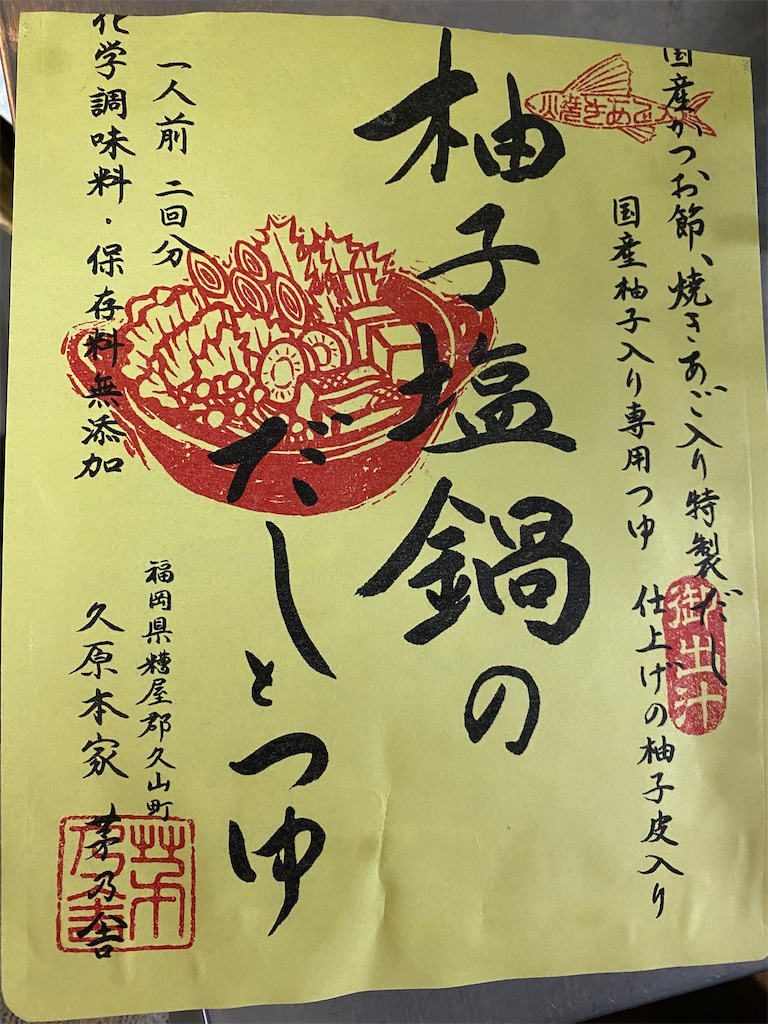 国産かつお節、焼きあご入り特製だし
国産柚子入り専用つゆ 仕上げの柚子皮入り
御出汁
柚子塩鍋の
だしとつゆ
一人前 二回分
化学調味料・保存料無添加
福岡県糟屋郡久山町
久原本家 茅乃舎
茅乃舎